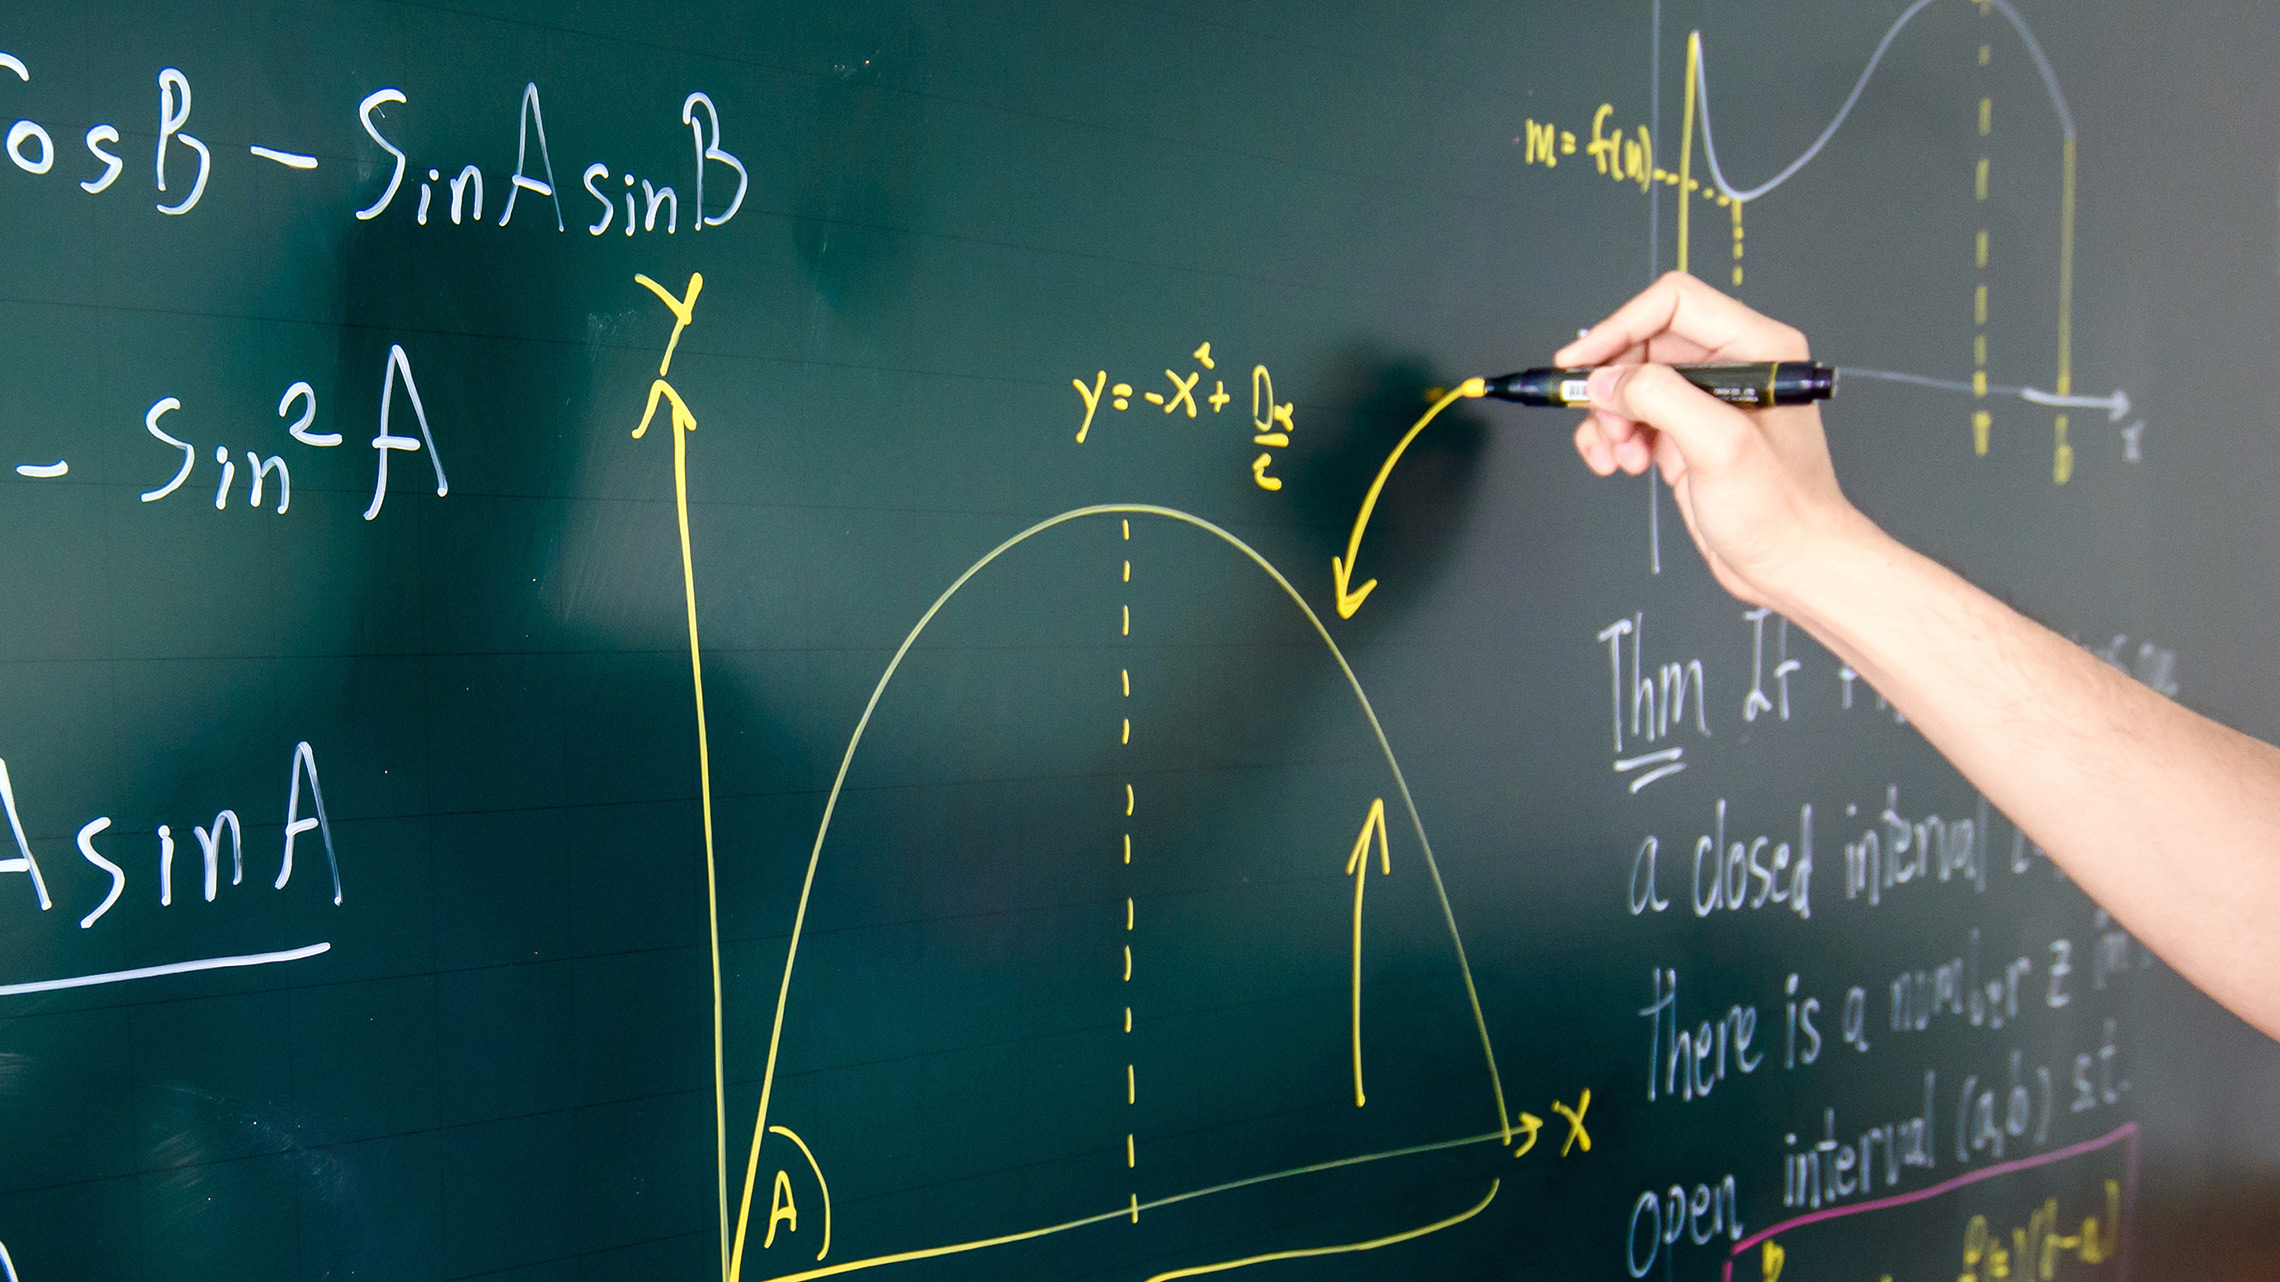 CosB - SinAsinB
- Sin²A
AsinA
Y
y = -x² +
A
X
m = f(u)
x
Thm If
a closed interval
there is a number z in
open interval (a,b) st.